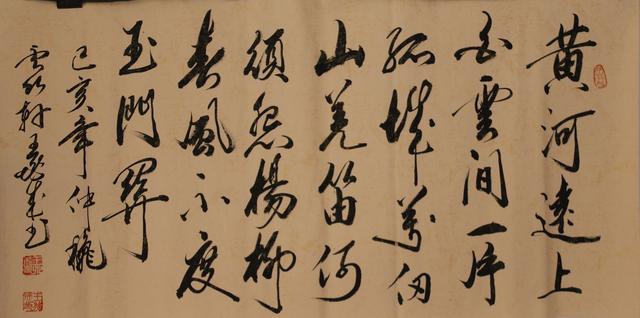 黄河遠上
白雲間一片
孤城萬仞
山羌笛何
須怨楊柳
春風不度
玉門關
己亥年仲秋
雲竹軒